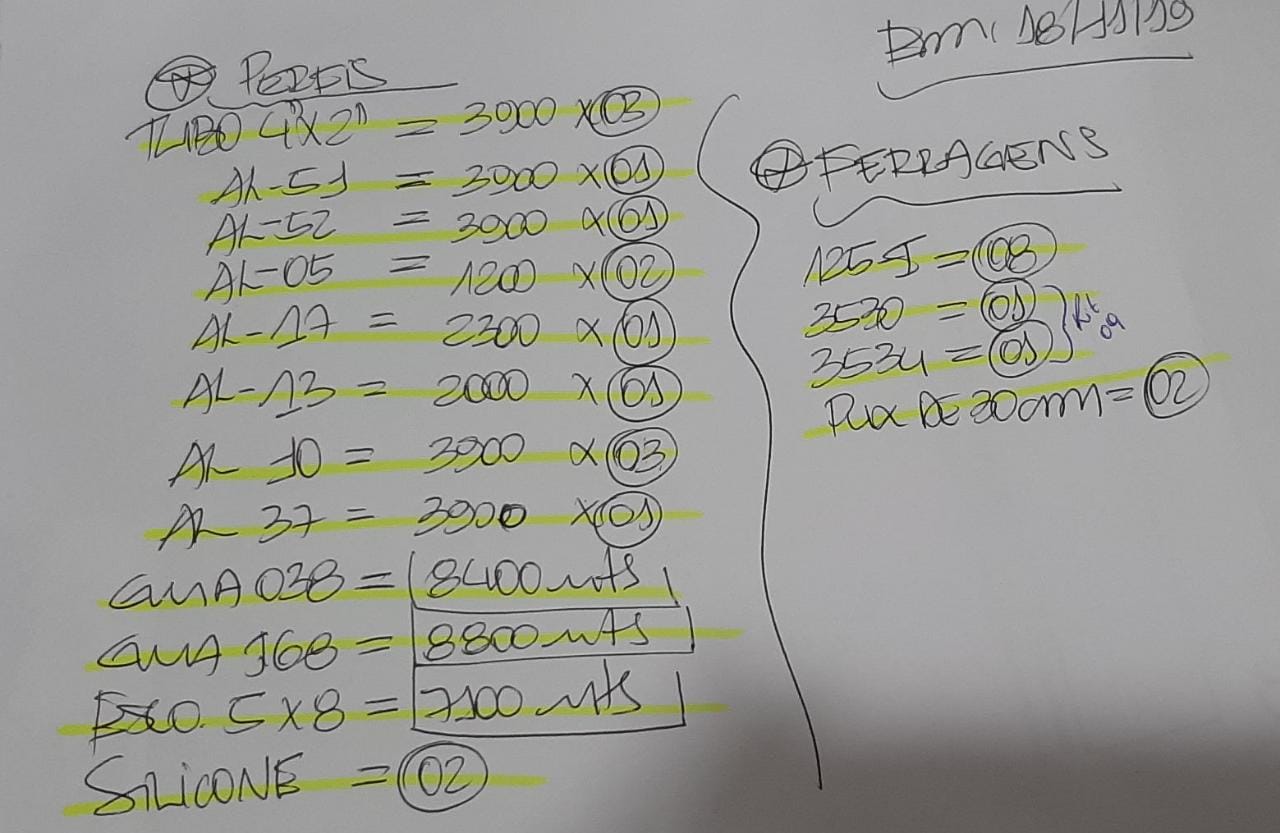 Em: 18/11/19
⊕ PERFIS
TUBO 4"X2" = 3900 X 03
AL-51 = 3900 X 01
AL-52 = 3900 X 01
AL-05 = 1200 X 02
AL-17 = 2300 X 01
AL-13 = 2000 X 01
AL 10 = 3900 X 03
AL 37 = 3900 X 01
GUIA 038 = 8400 mts
GUIA 168 = 8800 mts
5X8 = 7100 mts
SILICONE = 02
⊕ FERRAGENS
= 08
3530 = 01
3534 = 01
Kit 09
PUX DE 30cm = 02